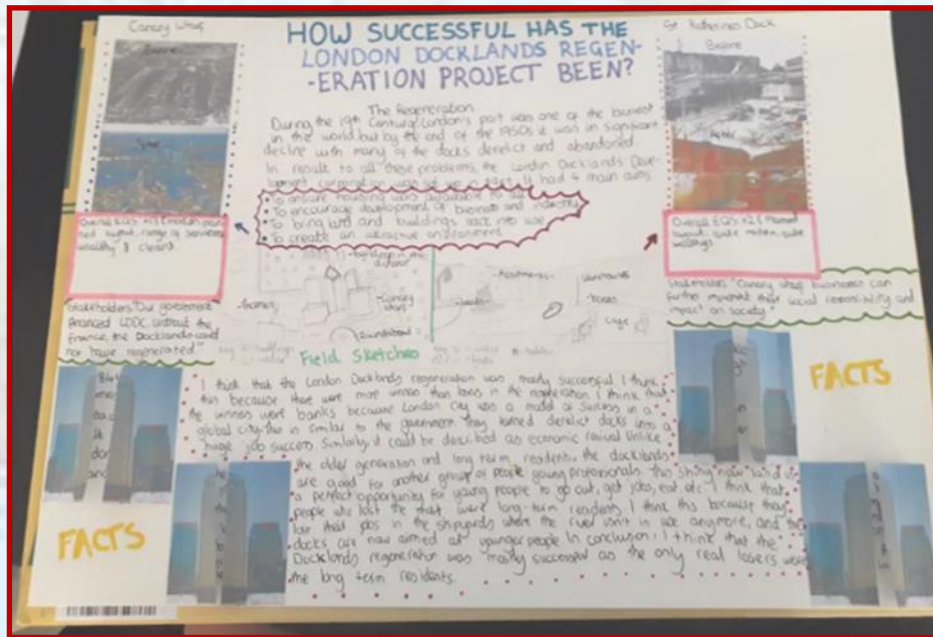 Canary Wharf
Before
HOW SUCCESSFUL HAS THE
LONDON DOCKLANDS REGEN-
-ERATION PROJECT BEEN?
St Katherines Dock
Before
After
The Regeneration
During the 19th Century London's port was one of the busiest
in the world but by the end of the 1950s it was in significant
decline with many of the docks derelict and abandoned.
In result to all these problems, the London Docklands Deve-
lopment corporation was set up. It had 4 main aims
• To ensure housing was available to all
• To encourage development of business and industry
• To bring land and buildings back into use
• To create an attractive environment
Overall EQS
layout, range of services
wealthy & clean.
Overall EQS +26 Planned
layout, quite modern, quite
wealthy.
Stakeholders "Our government
financed LDDC. Without the
finance, the Docklands could
not have regenerated."
-Canary
wharf
-Roundabout
-boats
-Apartments
-Trees
Cafe
Field Sketches
Stakeholders "Canary Wharf businesses can
further implement their social responsibility and
impact on society."
FACTS
I think that the London Docklands regeneration was mostly successful. I think
this because there were more winners than losers in the regeneration. I think that
the winners were banks because London City was a model of success in a
global city. This is similar to the government. They turned derelict docks into a
huge job success. Similarly it could be described as economic revival. Unlike
the older generation and long term residents, the docklands
are good for another group of people young professionals. This shiny new land is
a perfect opportunity for young people to go out, get jobs, eat etc. I think that
people who lost the that were long-term residents. I think this because they
lost their jobs in the shipyards where the river isn't in use anymore, and the
docks are now aimed at younger people. In conclusion, I think that the
Docklands regeneration was mostly successful as the only real losers were
the long term residents.
FACTS